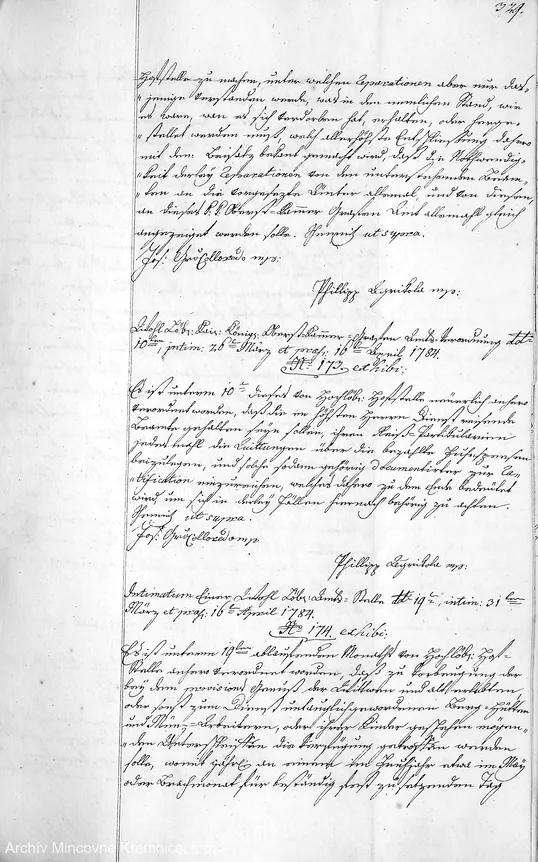 329.
Hofstelle zu machen, unter welchen Reparationen aber nur das-
"jenige verstanden werde, was in den nemlichen Stand, wie
es ware, wan es sich verdorben hat, erhalten, oder herge-
"stellet werden muß, welch allerhöchste Entschliessung dahero
mit dem Beisatz bekant gemacht wird, daß die Nothwendig-
"keit derley Reparationen von den unterstehenden Beam-
"ten an die vorgesezte Ämter allemal, und von diesen
an dieses k. k. Oberst-Kammer Grafen Amt allemahl gleich
angezeiget werden solle. Chemnitz ut supra.
Jos: Colloredo mp:
Philipp Agrikola mp:
Wohl Löbl: Kais: Königl: Oberst Kammer-Grafen Amts-Verordnung ddo
10ten, intim: 26ten März et praes: 16ten April 1784.
No 173. exhibi:
Es ist unterm 10ten dieses von Hochlöbl: Hofstelle neuerlich anhero
verordnet worden, daß die in höchsten Herren Dienst reisende
Beamte gehalten seyn sollen, ihren Reiß-Partikularien
jedesmahl die Quittungen über die bezahlte
beizulegen, und solche sodann gehörig documentirter zur Ra-
"tification einzureichen, welches dahero zu dem Ende bedeutet
wird, um sich in derley Fällen hiernach behörig zu achten.
Chemnitz ut supra.
Jos: Colloredo mp
Philipp Agrikola mp:
Intimatum Einer Wohl Löbl: Amts-Stelle ddo 19ten, intim: 31ten
März et praes: 16ten April 1784.
No 174. exhibi:
Es ist unterm 19ten ablaufenden Monaths von Hochlöbl: Hof-
Stelle anhero verordnet worden, daß zu Vorbeugung der
bey dem provisions Genuß der Wittwen und alt erlebten
oder sonst zum Dienst untauglich gewordenen Berg- Hütten
und Münz-Arbeitern, oder ihrer Kinder geschehen mögen-
"den Unterschleifen die Verfügung getroffen werden
solle, womit jährl: an einem im Frühjahr etwa im May
oder Brachmonat für beständig fest zu setzenden Tag
Archiv Mincovne Kremnica, š.p.